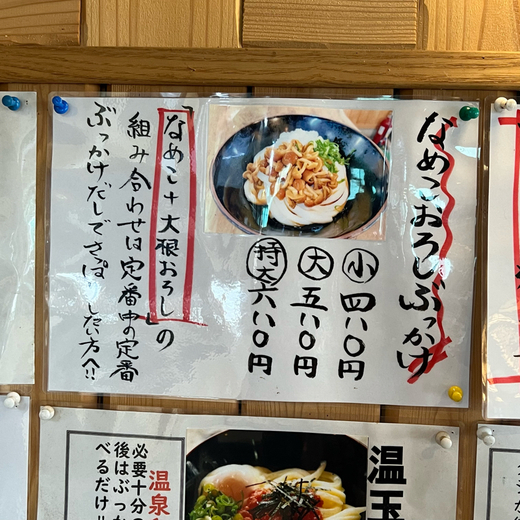 なめこおろしぶっかけ
小 四八〇円
大 五八〇円
特大 六八〇円
「なめこ+大根おろし」の
組み合わせは定番中の定番
ぶっかけだしでさっぱりしたい方へ!!
温玉
温泉
必要十分の
後はぶっ
べるだけ!!